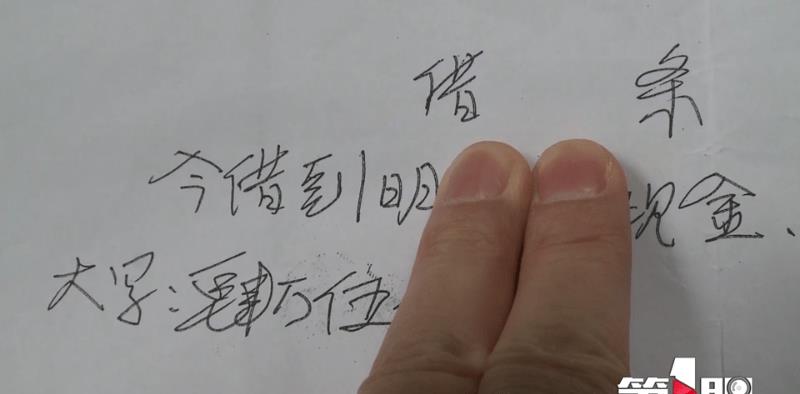 借条
今借到明 现金、
大写:肆万伍
第1眼